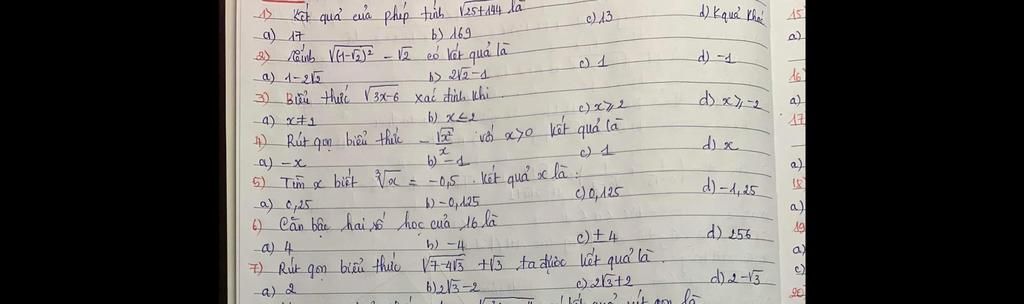 1) Kết quả của phép tính √25+144 là
a) 17 b) 169 c) 13 d) K quả khác
2) Tính √(1-√2)² - √2 có kết quả là
a) 1-2√2 b) 2√2-1 c) 1 d) -1
3) Biểu thức √3x-6 xác định khi
a) x≠2 b) x≤2 c) x≥2 d) x≥-2
4) Rút gọn biểu thức -√x²/x với x>0 kết quả là
a) -x b) -1 c) 1 d) x
5) Tìm x biết ³√x = -0,5. Kết quả x là:
a) 0,25 b) -0,125 c) 0,125 d) -1,25
6) Căn bậc hai số học của 16 là
a) 4 b) -4 c) ±4 d) 256
7) Rút gọn biểu thức √7-4√3 + √3 ta được kết quả là
a) 2 b) 2√3-2 c) 2√3+2 d) 2-√3
15
a)
16
a)
17
a)
18
a)
19
a)
c)
20